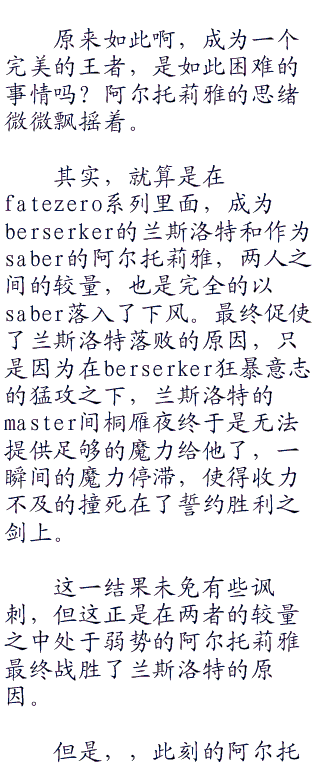 原来如此啊，成为一个
完美的王者，是如此困难的
事情吗？阿尔托莉雅的思绪
微微飘摇着。
其实，就算是在
fatezero系列里面，成为
berserker的兰斯洛特和作为
saber的阿尔托莉雅，两人之
间的较量，也是完全的以
saber落入了下风。最终促使
了兰斯洛特落败的原因，只
是因为在berserker狂暴意志
的猛攻之下，兰斯洛特的
master间桐雁夜终于是无法
提供足够的魔力给他了，一
瞬间的魔力停滞，使得收力
不及的撞死在了誓约胜利之
剑上。
这一结果未免有些讽
刺，但这正是在两者的较量
之中处于弱势的阿尔托莉雅
最终战胜了兰斯洛特的原
因。
但是，，此刻的阿尔托